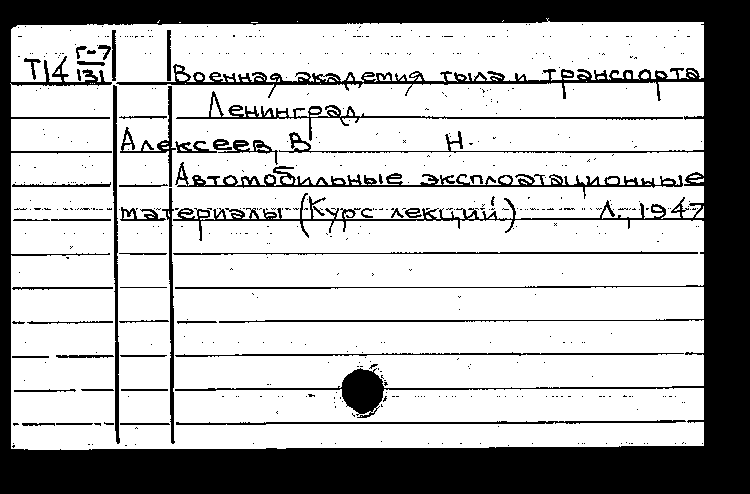 Т14 Г-7/131 Военная академия тыла и транспорта
Ленинград.
Алексеев, В Н.
Автомобильные эксплоатационные
материалы (Курс лекций.) Л., 1947